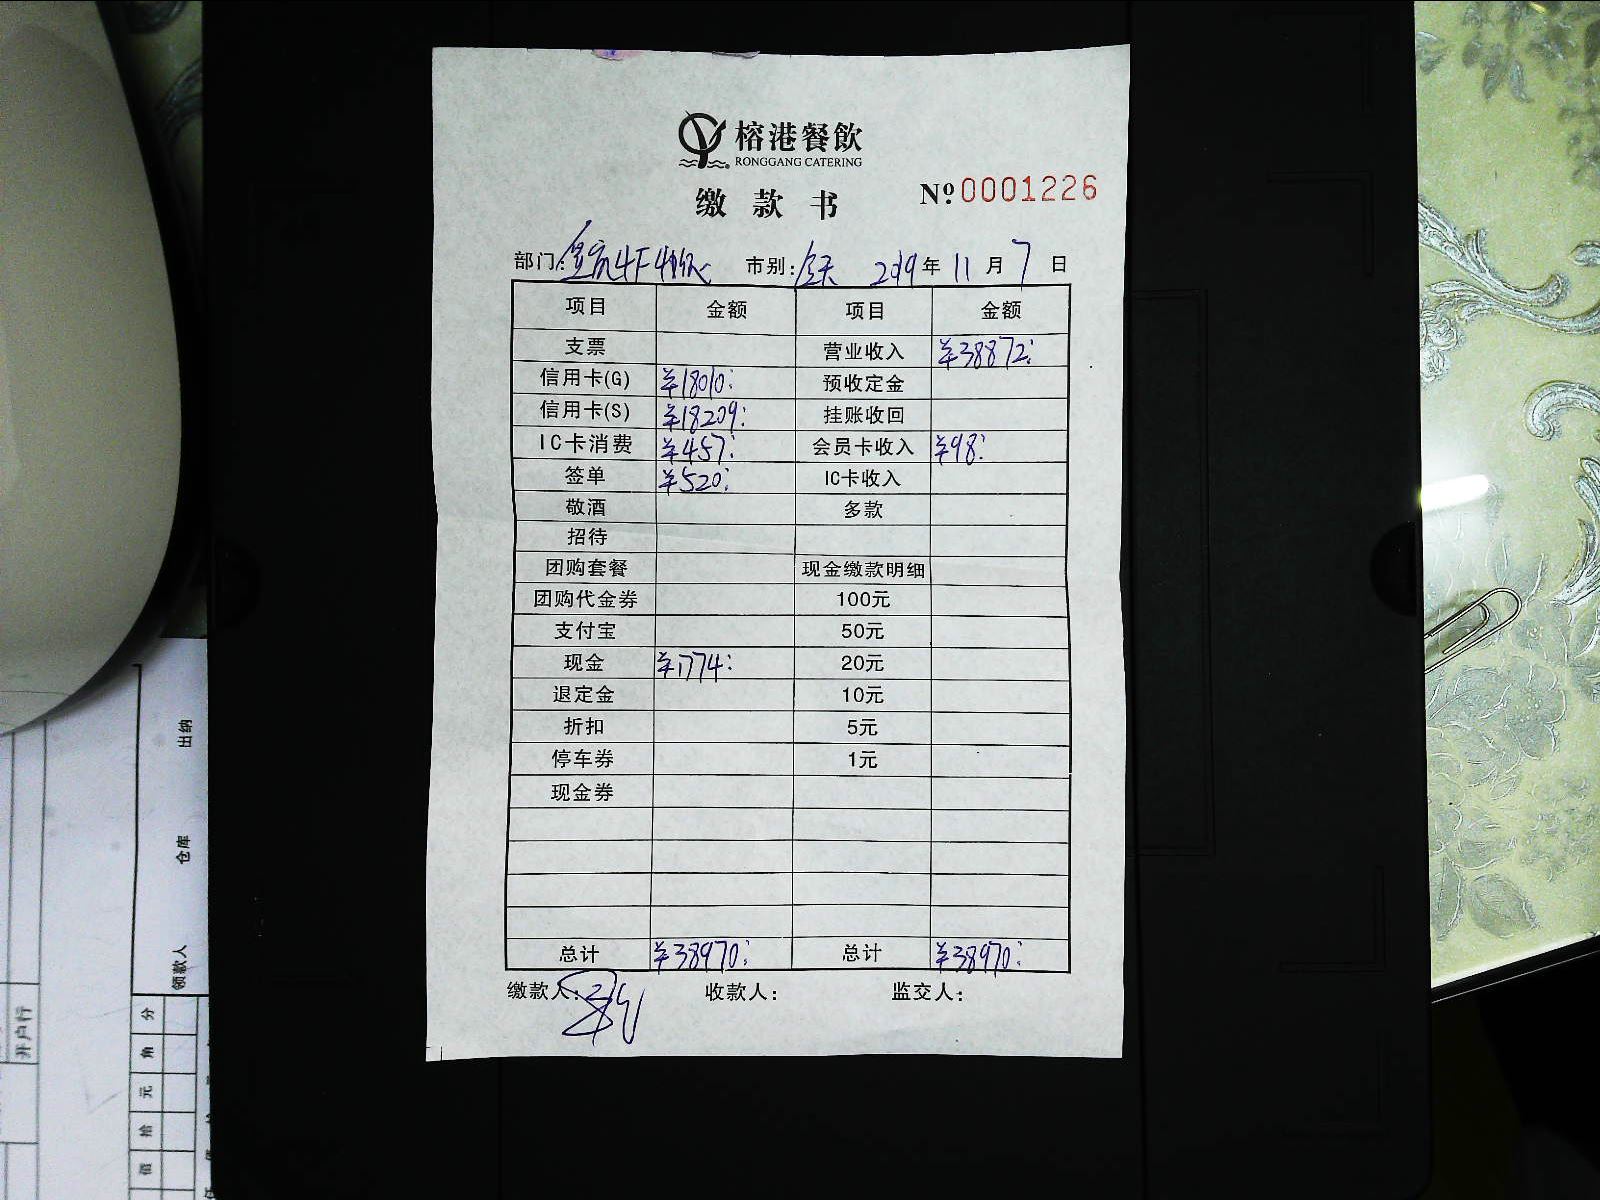 榕港餐飲
RONGGANG CATERING
缴款书 №0001226
部门: 市别:全天 2019年11月7日
项目 金额 项目 金额
支票 营业收入 ¥38872:
信用卡(G) ¥18010: 预收定金
信用卡(S) ¥18209: 挂账收回
IC卡消费 ¥457: 会员卡收入 ¥98:
签单 ¥520: IC卡收入
敬酒 多款
招待
团购套餐 现金缴款明细
团购代金券 100元
支付宝 50元
现金 ¥1774: 20元
退定金 10元
折扣 5元
停车券 1元
现金券
总计 ¥38970: 总计 ¥38970:
缴款人: 收款人: 监交人:
出纳
仓库
领款人
开户行
分
角
元
拾
佰